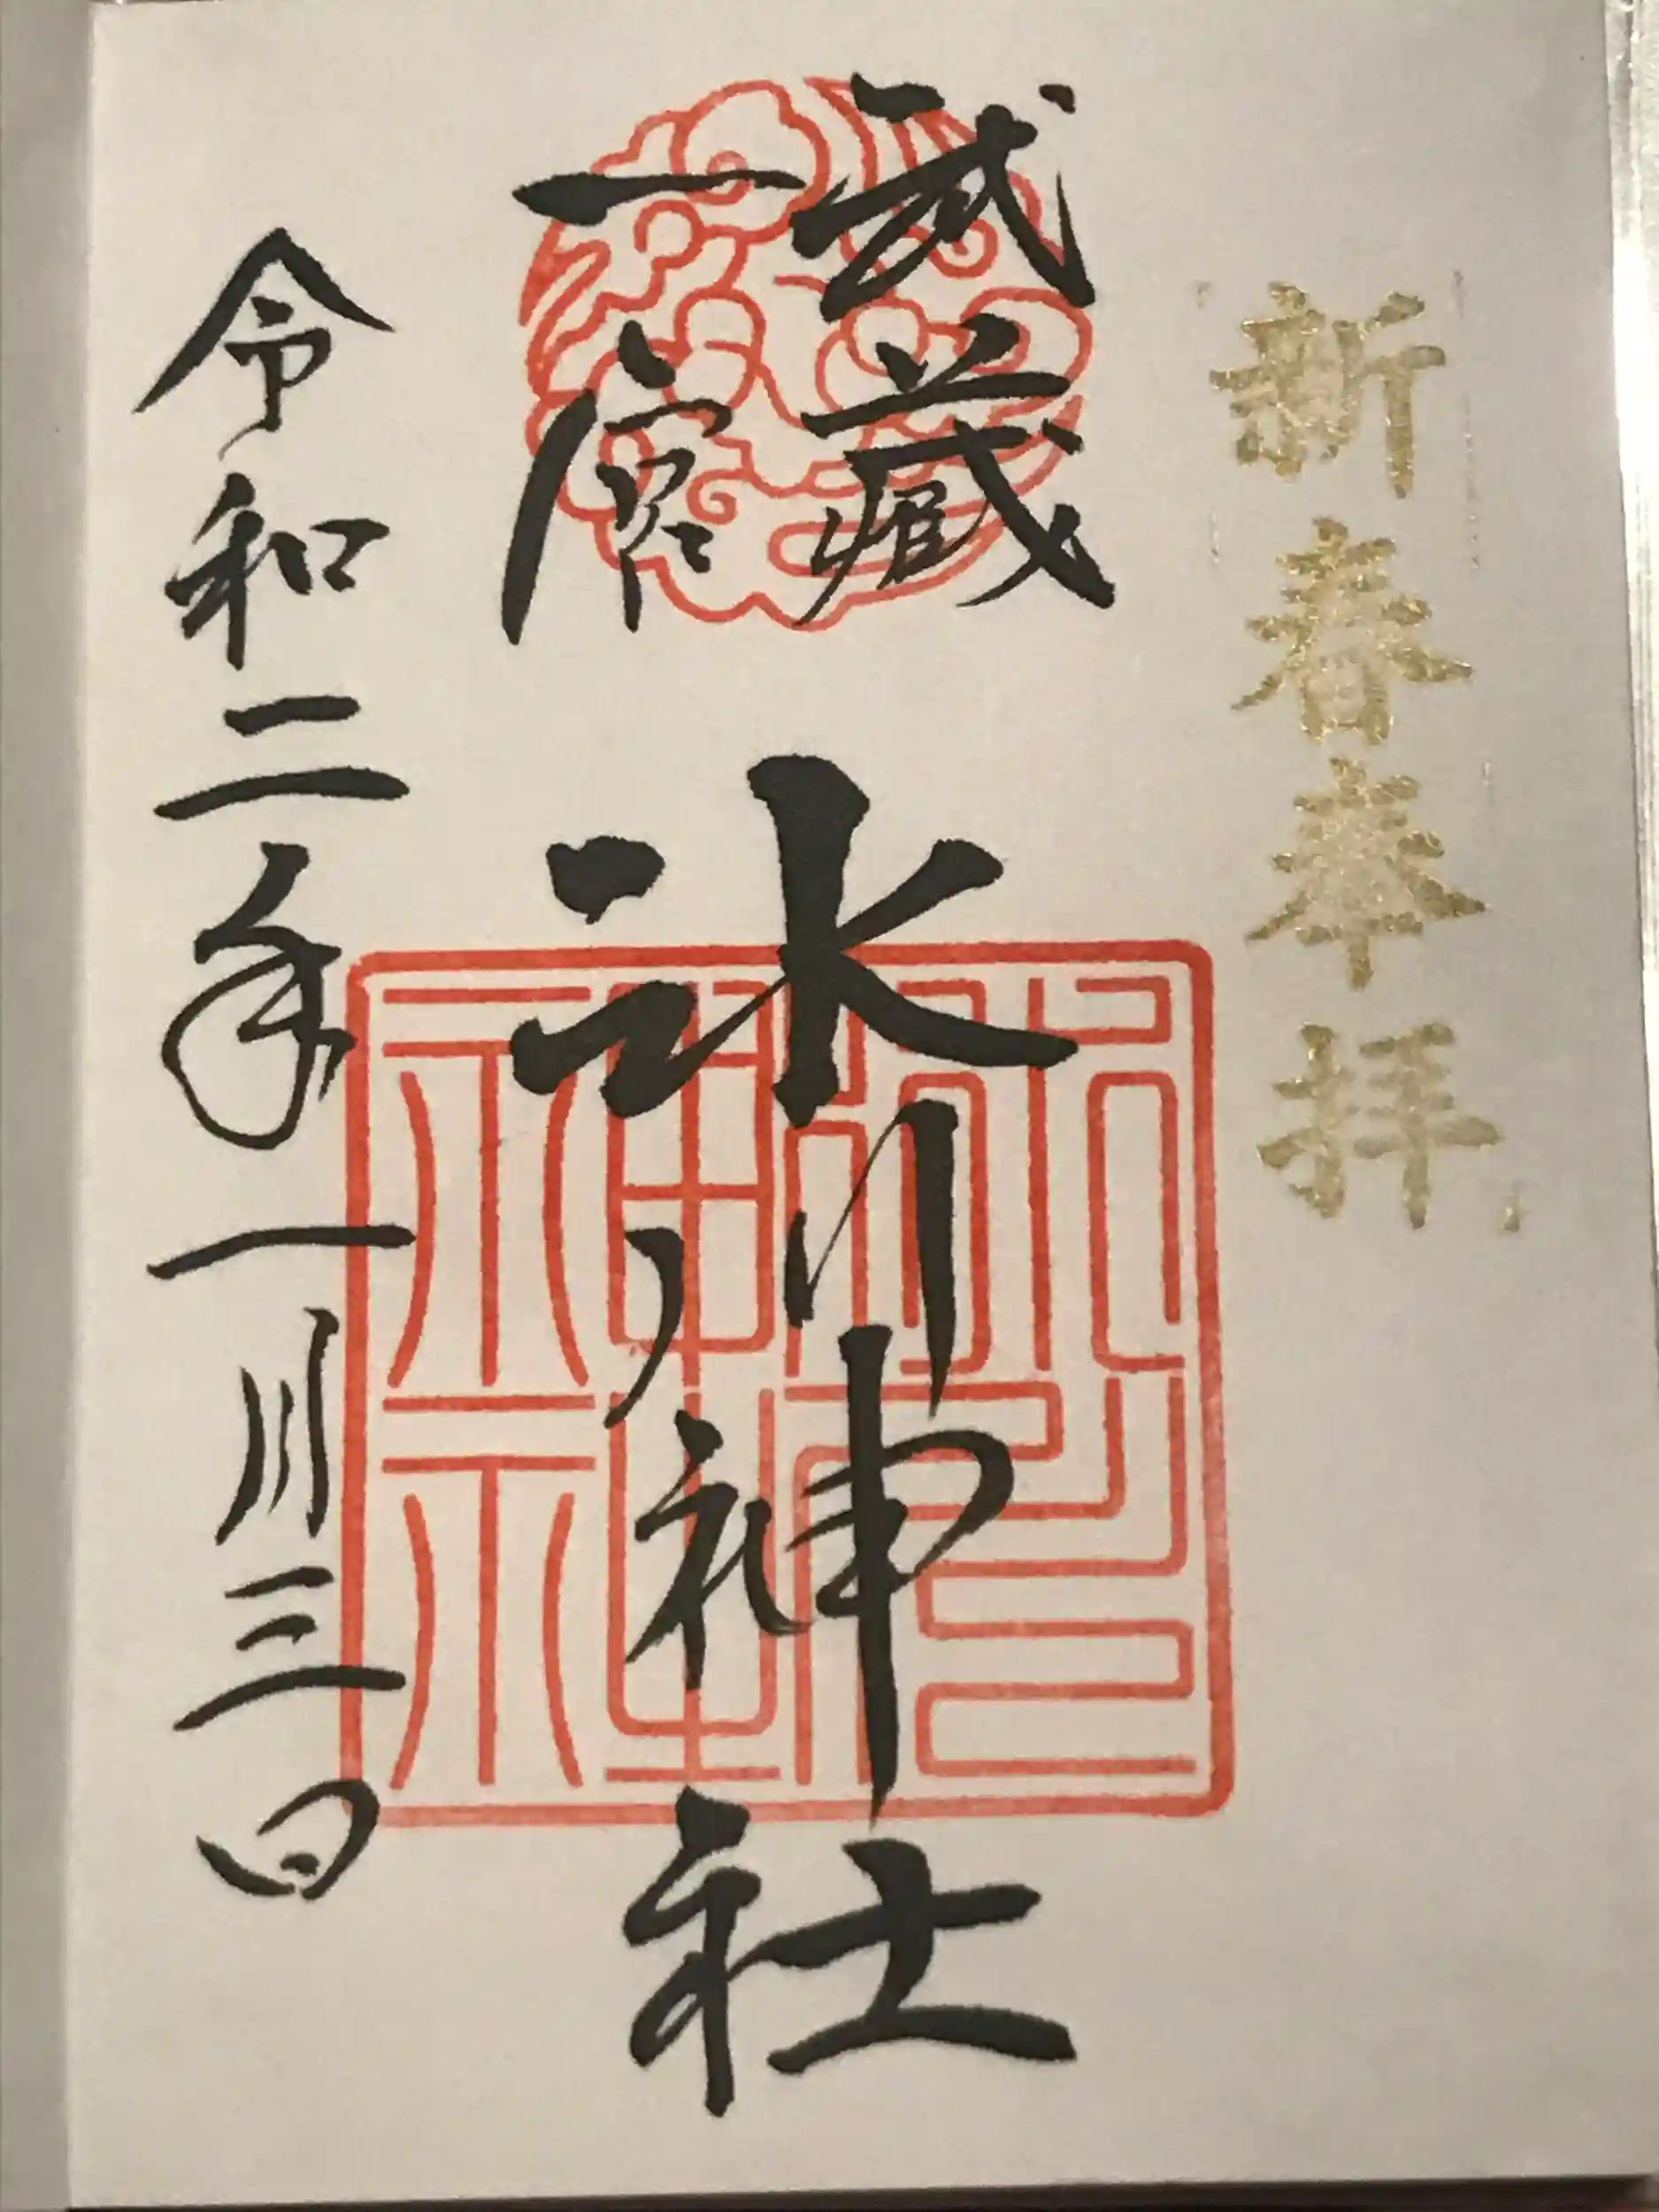 新春奉拝
武藏
一宮
氷川神社
令和二年一月三日